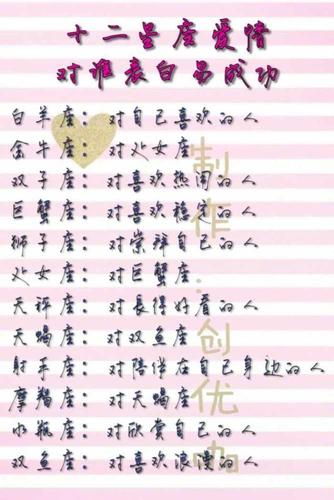 十二星座爱情
对谁表白易成功
白羊座：对自己喜欢的人
金牛座：对处女座
双子座：对喜欢热闹的人
巨蟹座：对喜欢稳定的人
狮子座：对崇拜自己的人
处女座：对巨蟹座
天秤座：对長得好看的人
天蝎座：对双鱼座
射手座：对陪伴在自己身边的人
摩羯座：对天蝎座
水瓶座：对欣赏自己的人
双鱼座：对喜欢浪漫的人
制作：创优咖